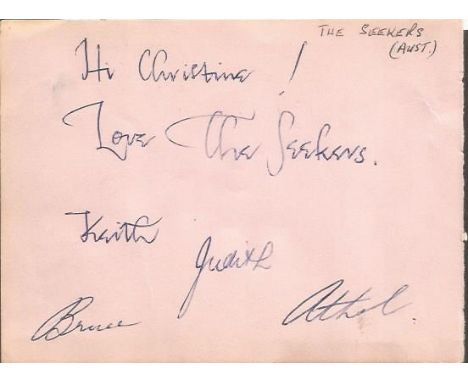 THE SEEKERS
(AUST.)
Hi Christine !
Love The Seekers.
Keith
Judith
Bruce
Athol.